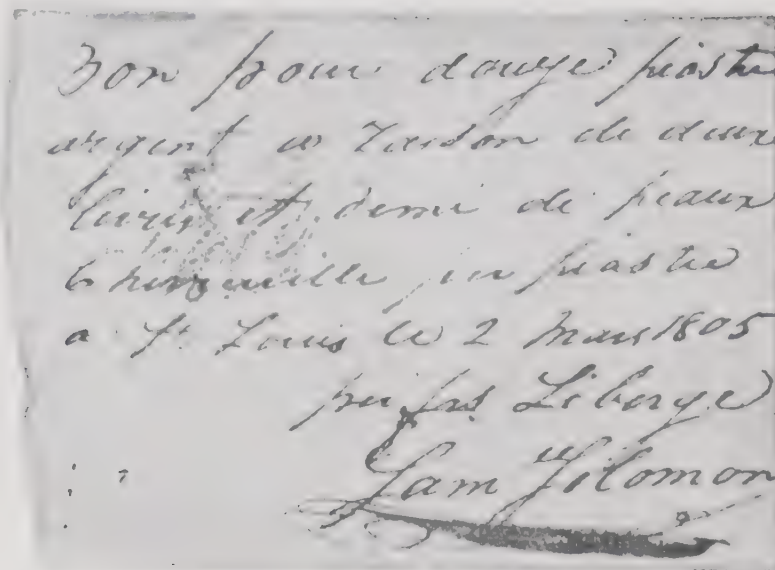 Bon pour douze piastre
argent a raison de deux
livres et demi de peaux
Chevreuille par piastre
a St Louis le 2 Mars 1805
par frs Leberge
Sam Solomon